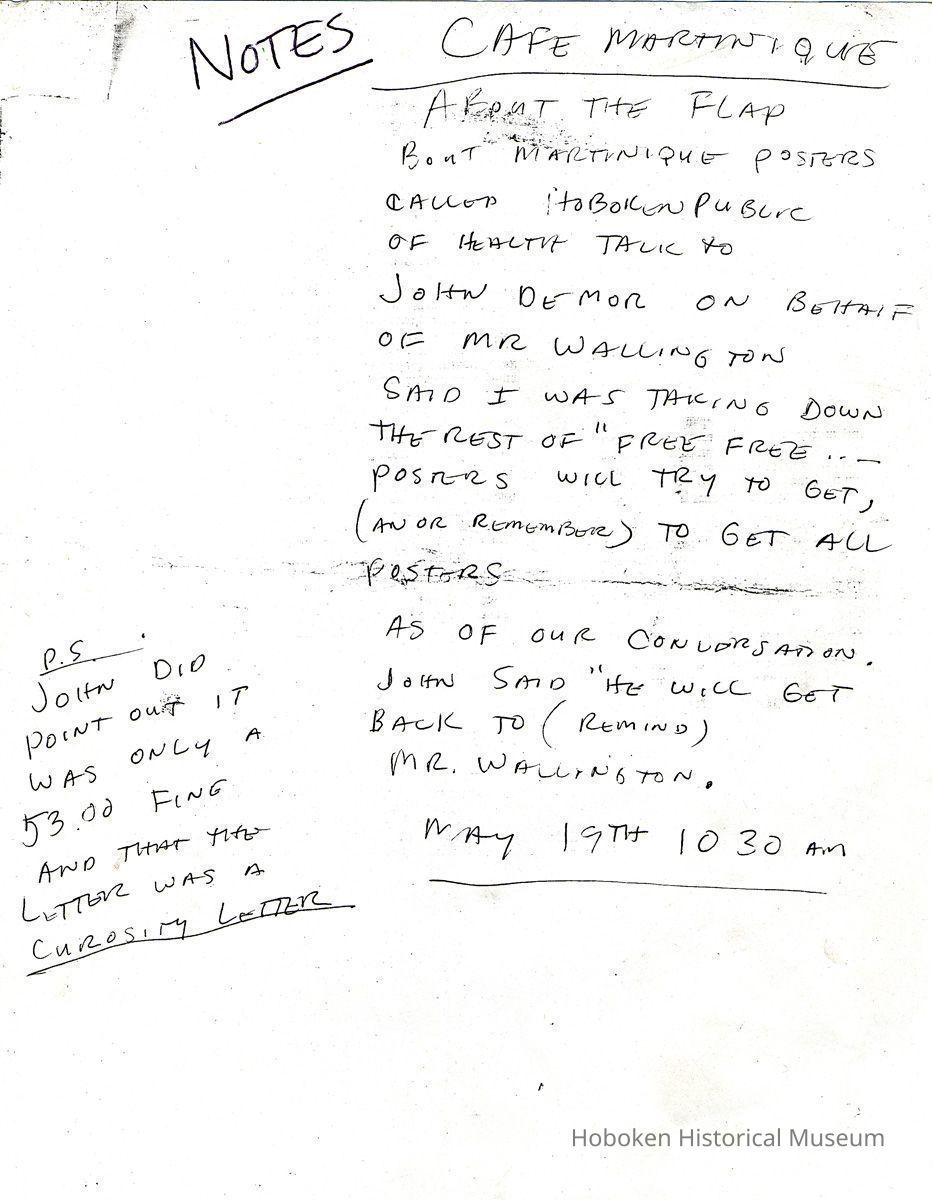 NOTES
CAFE MARTINIQUE
ABOUT THE FLAP
BOUT MARTINIQUE POSTERS
CALLED HOBOKEN PUBLIC
OF HEALTH TALK TO
JOHN DEMOR ON BEHALF
OF MR WALLINGTON
SAID I WAS TAKING DOWN
THE REST OF "FREE FREE ... _
POSTERS WILL TRY TO GET,
(AN OR REMEMBER) TO GET ALL
POSTERS
AS OF OUR CONVERSATION.
JOHN SAID "HE WILL GET
BACK TO (REMIND)
MR. WALLINGTON.
MAY 19TH 10 30 AM
P.S.
JOHN DID
POINT OUT IT
WAS ONLY A
53.00 FINE
AND THAT THE
LETTER WAS A
CUROSITY LETTER
Hoboken Historical Museum